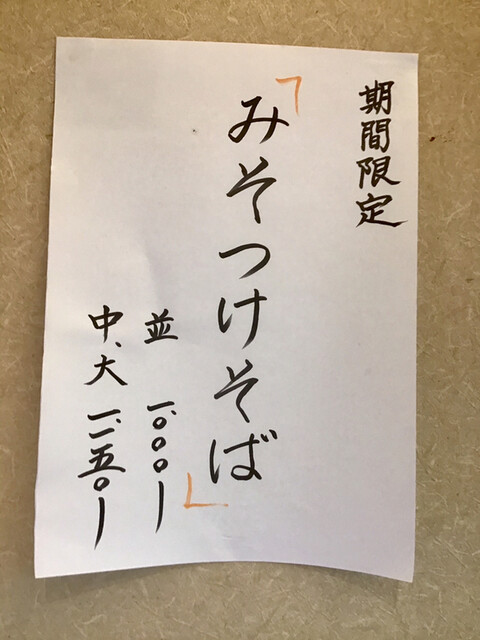 期間限定
「みそつけそば」
並 一、〇〇〇ー
中、大 一、一五〇ー